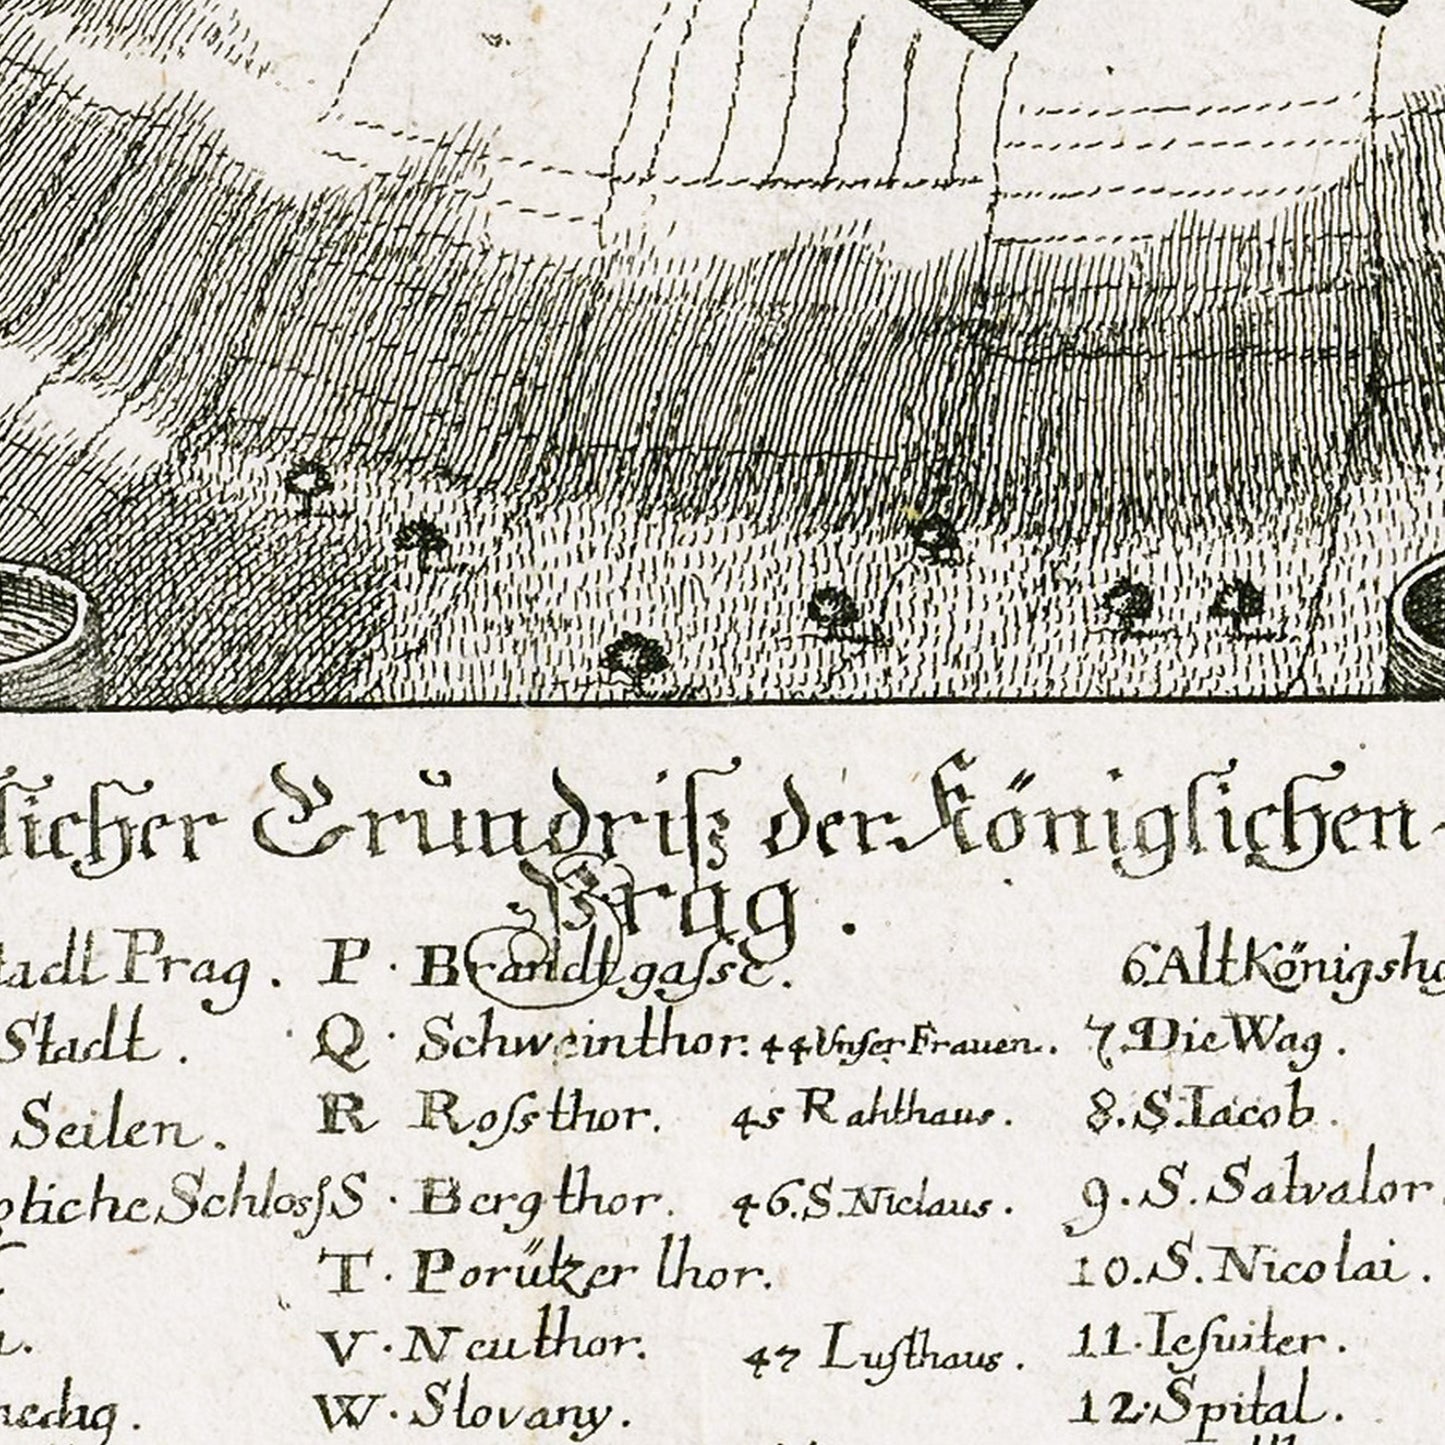 licher Grŭndriſz der Königlichen
Prag.
Prag. P. Brandtgaſse. 6. Alt Königsho
Stadt. Q. Schweinthor. 44 Vnſer Frauen. 7. Die Wag.
Seilen. R Roſsthor. 45 Rahthaus. 8. S. Iacob.
gliche Schloſs S. Bergthor. 46. S. Niclaus. 9. S. Salvator.
T. Porützer thor. 10. S. Nicolai.
V. Neuthor. 47 Luſthaus. 11. Ieſuiter.
W. Slovany. 12. Spital.